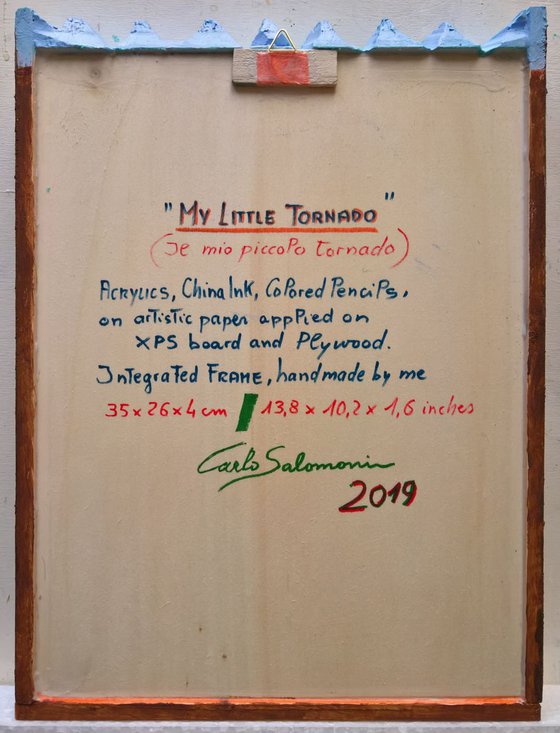 "My Little Tornado"
(Il mio piccolo tornado)
Acrylics, China Ink, Colored Pencils,
on artistic paper applied on
XPS board and Plywood.
Integrated FRAME, handmade by me
35x26x4 cm / 13,8 x 10,2 x 1,6 inches
Carlo Salomoni
2019